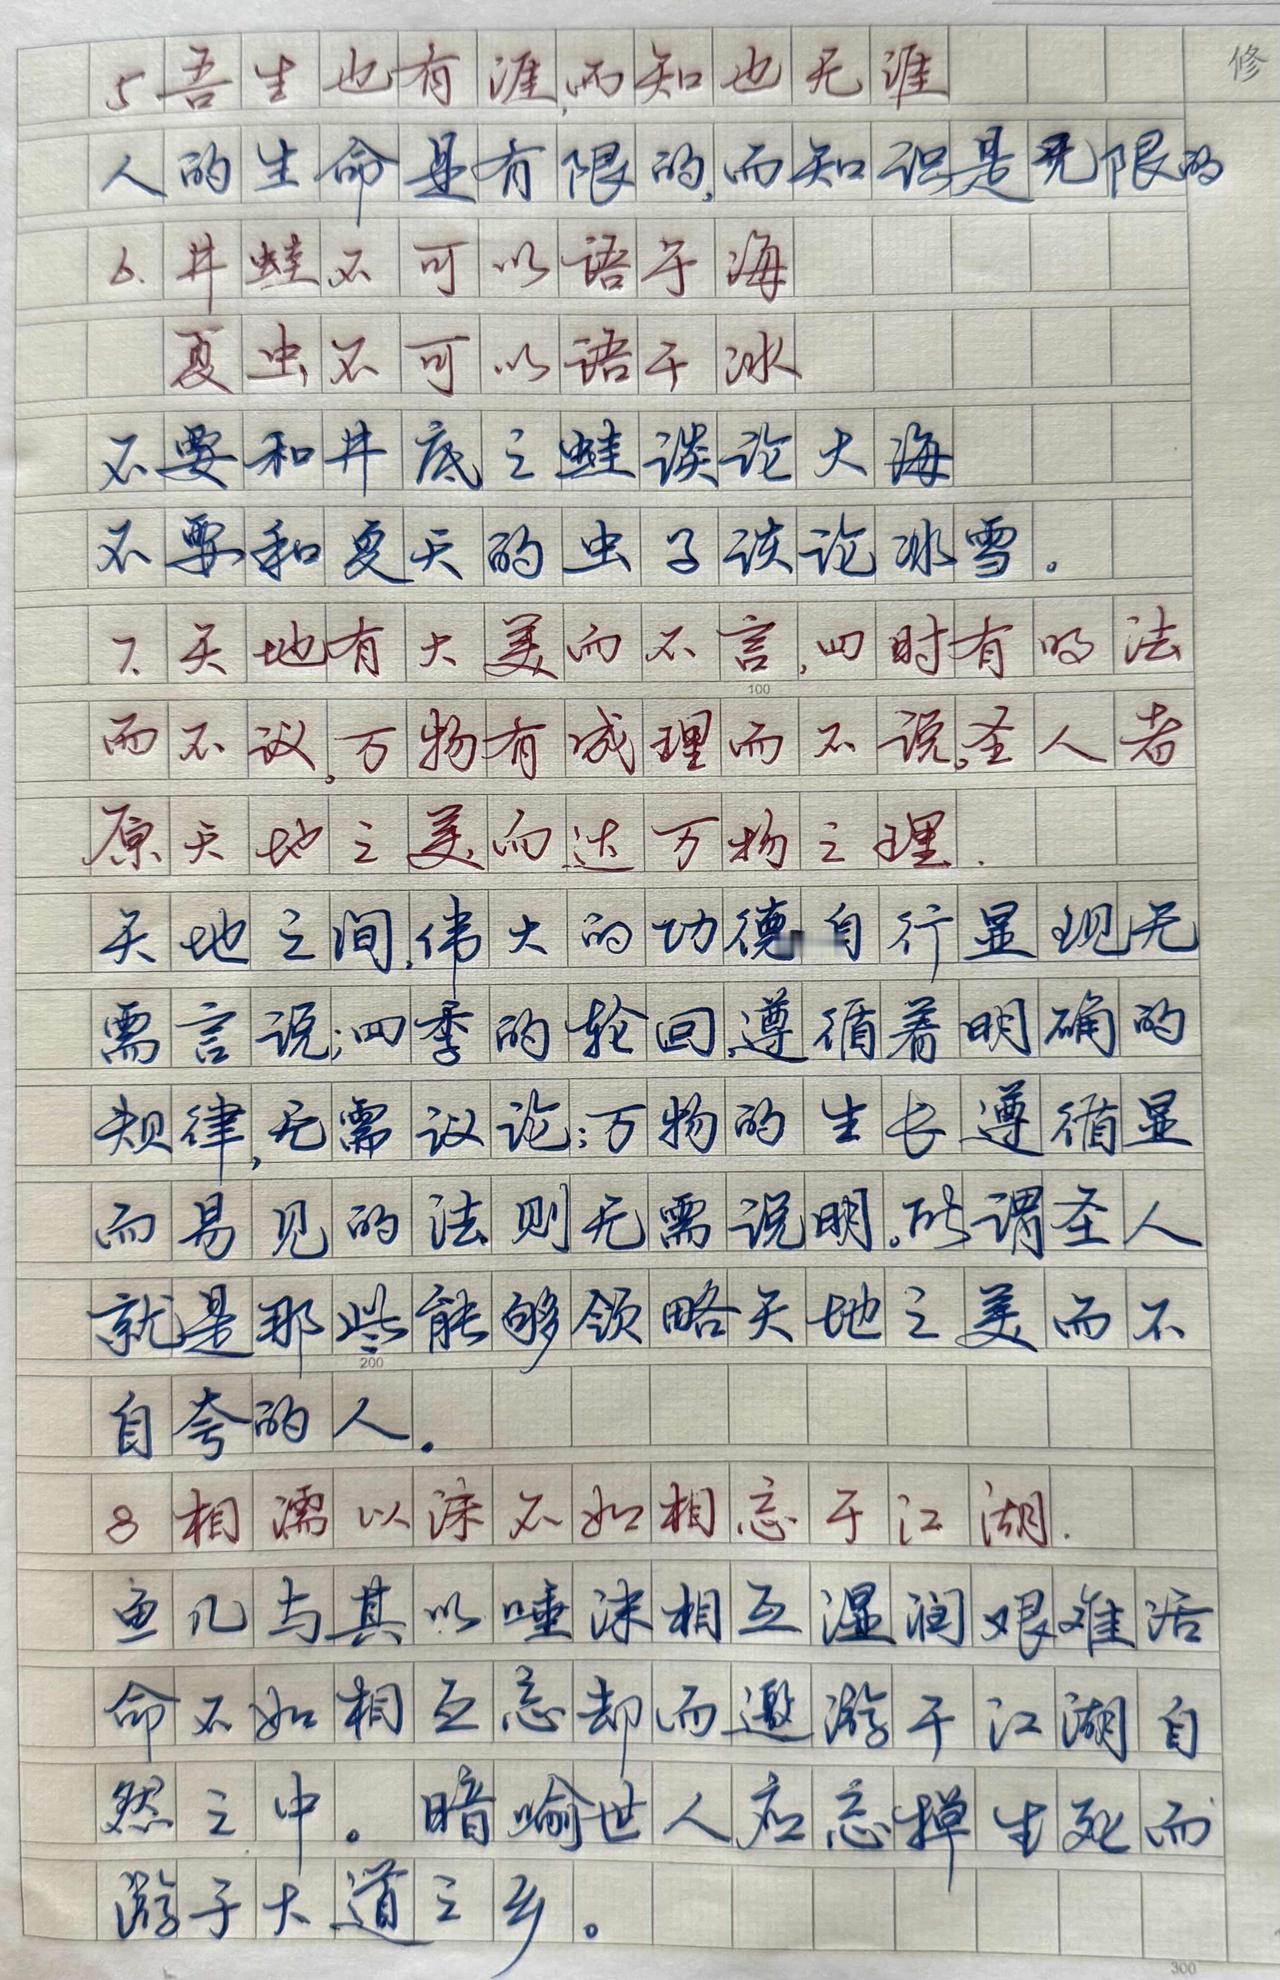 5 吾生也有涯,而知也无涯
修
人的生命是有限的,而知识是无限的
6. 井蛙不可以语于海
夏虫不可以语于冰
不要和井底之蛙谈论大海
不要和夏天的虫子谈论冰雪。
7. 天地有大美而不言,四时有明法
100
而不议,万物有成理而不说。圣人者
原天地之美而达万物之理.
天地之间,伟大的功德自行显现无
需言说;四季的轮回遵循着明确的
规律,无需议论;万物的生长遵循显
而易见的法则无需说明。所谓圣人
就是那些能够领略天地之美而不
200
自夸的人.
8 相濡以沫不如相忘于江湖.
鱼儿与其以唾沫相互湿润艰难活
命不如相互忘却而遨游于江湖自
然之中。暗喻世人应忘掉生死而
游于大道之乡。
300